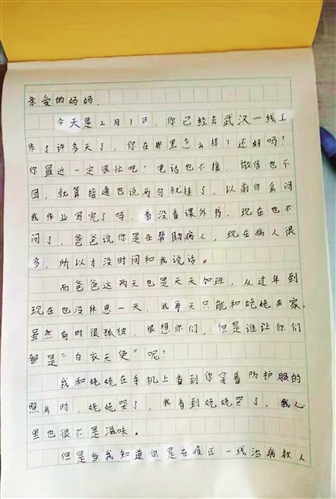 亲爱的妈妈：
今天是2月1日，你已经去武汉一线工
作了许多天了，你在那里怎么样？还好吗？
你最近一定很忙吧！电话也不接，微信也不
回，就算接通也说两句就挂了，以前你会问
我作业写完了吗，看没看课外书，现在也不
问了，爸爸说你是在帮助病人，现在病人很
多，所以才没时间和我说话。
而爸爸这两天也是天天加班，从过年到
现在也没休息一天，我每天只能和姥姥在家，
虽然有时很孤独，很想你们，但是谁让你们
都是“白衣天使”呢！
我和姥姥在手机上看到你穿着防护服的
照片时，姥姥哭了，我看到姥姥哭了，我心
里也很不是滋味。
但是当我知道你是在疫区一线治病救人